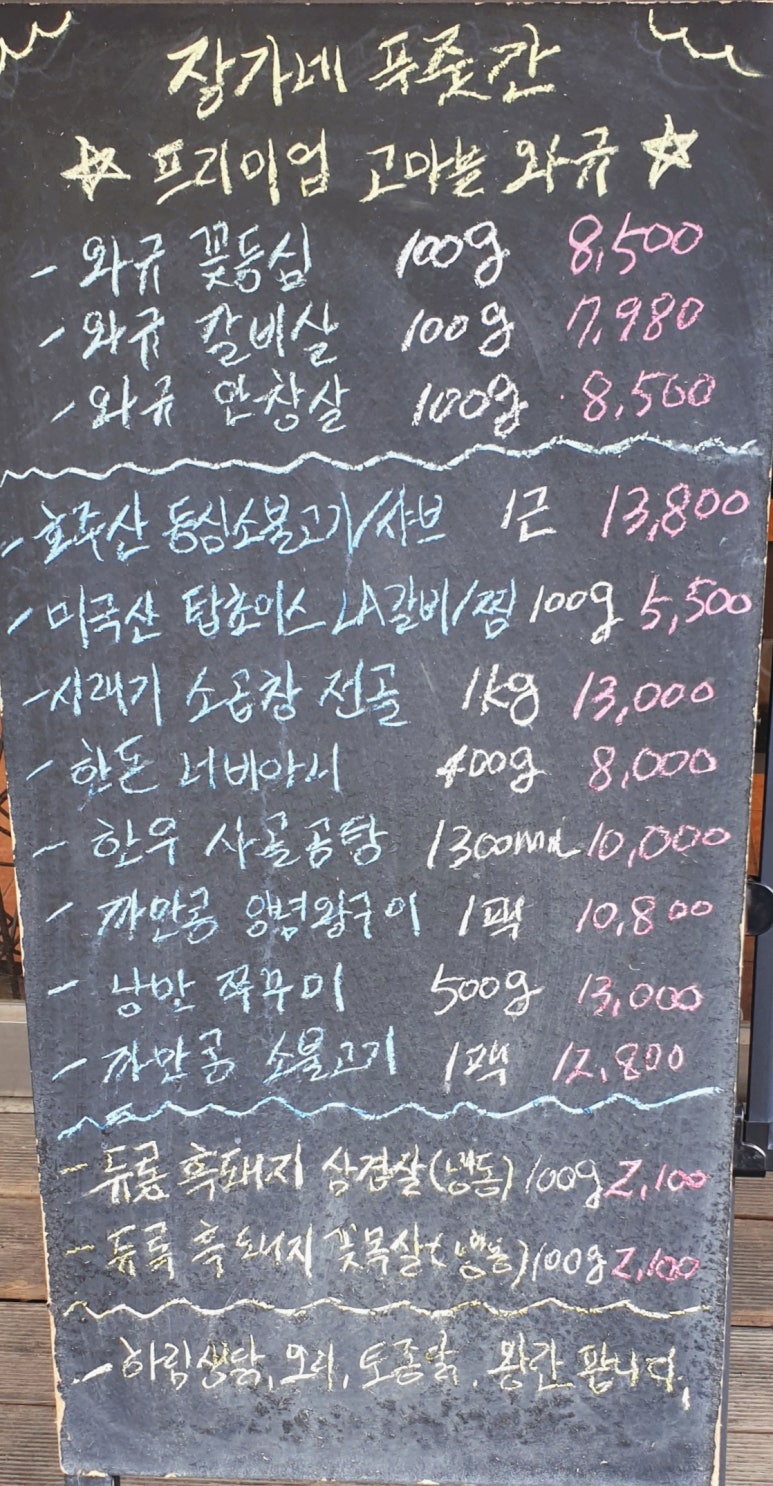 장가네 푸줏간
☆ 프리미엄 고마블 와규 ☆
- 와규 꽃등심 100g 8,500
- 와규 갈비살 100g 7,980
- 와규 안창살 100g 8,500
- 호주산 등심소불고기/샤브 1근 13,800
- 미국산 탑초이스 LA갈비/찜 100g 5,500
- 시래기 소곱창 전골 1kg 13,000
- 한돈 너비아니 400g 8,000
- 한우 사골곰탕 1300ml 10,000
- 까만콩 양념왕구이 1팩 10,800
- 낭만 쭈꾸미 500g 13,000
- 까만콩 소불고기 1팩 12,800
- 듀록 흑돼지 삼겹살(냉동) 100g 2,100
- 듀록 흑돼지 꽃목살(냉동) 100g 2,100
- 하림생닭, 오리, 토종닭, 왕란 팝니다.